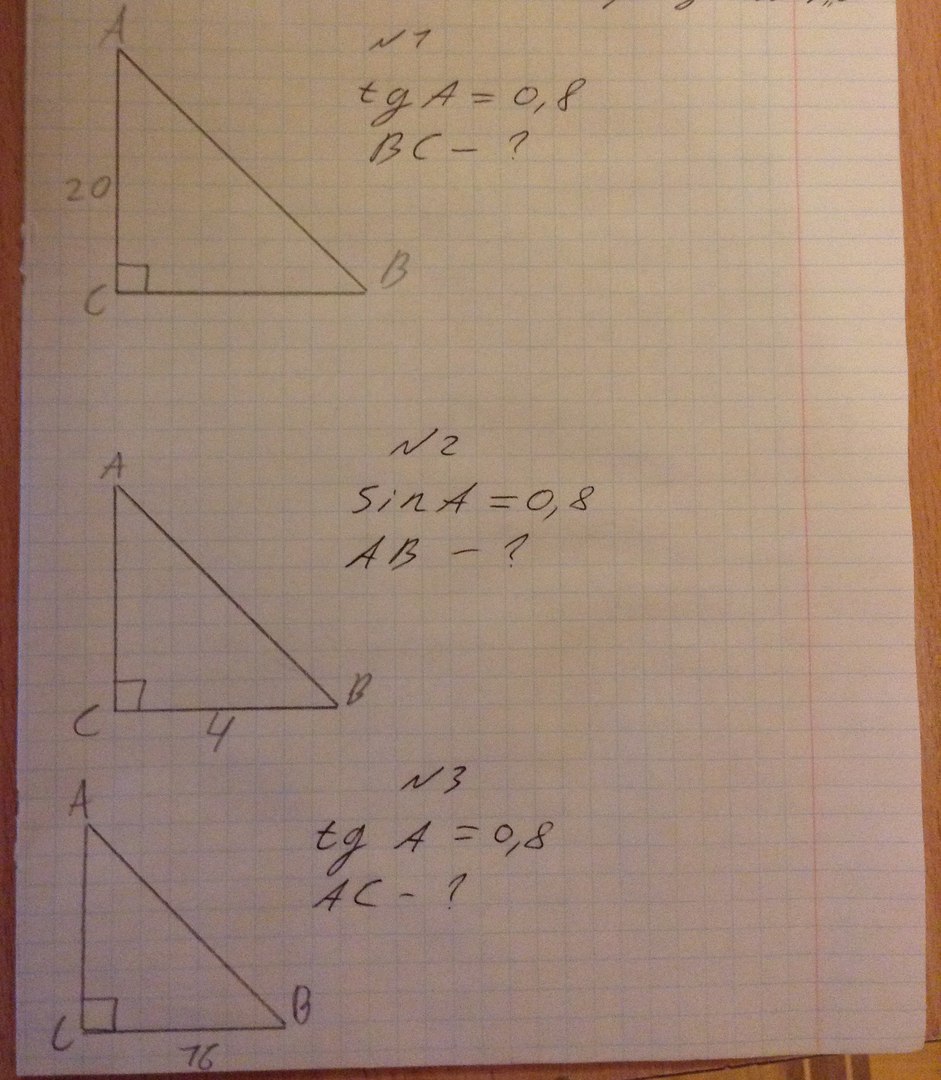 A
N1
tg A = 0,8
BC - ?
20
B
C
N2
A
sin A = 0,8
AB - ?
B
C
4
N3
A
tg A = 0,8
AC - ?
B
C
16